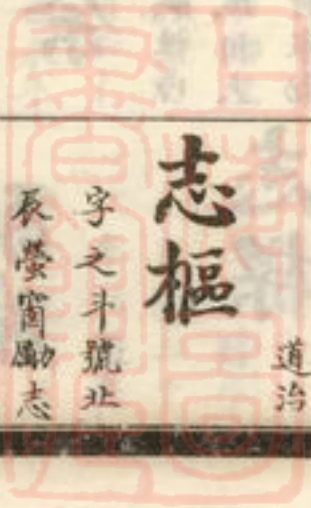 道治
志樞
字之斗號北
辰螢窗勵志